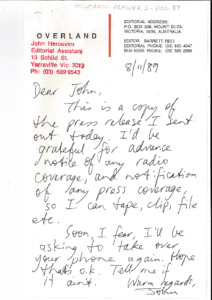 OVERLAND
John Herouvim
Editorial Assistant
13 Schild St.
Yarraville Vic 3013
Ph: (03) 689 9543
EDITORIAL ADDRESS:
PO BOX 249, MOUNT ELIZA,
VICTORIA, 3930, AUSTRALIA
EDITOR: BARRETT REID
EDITORIAL PHONE:
8/11/89
Dear John,
This is a copy of
the press release I sent
out today. I'd be
grateful for advance
notice of any radio
coverage, and notification
of any press coverage,
so I can tape, clip, file
etc.
Soon, I fear, I'll be
asking to take over
your phone again. Hope
thats o.k. Tell me if
it ain't. Warm regards,
John